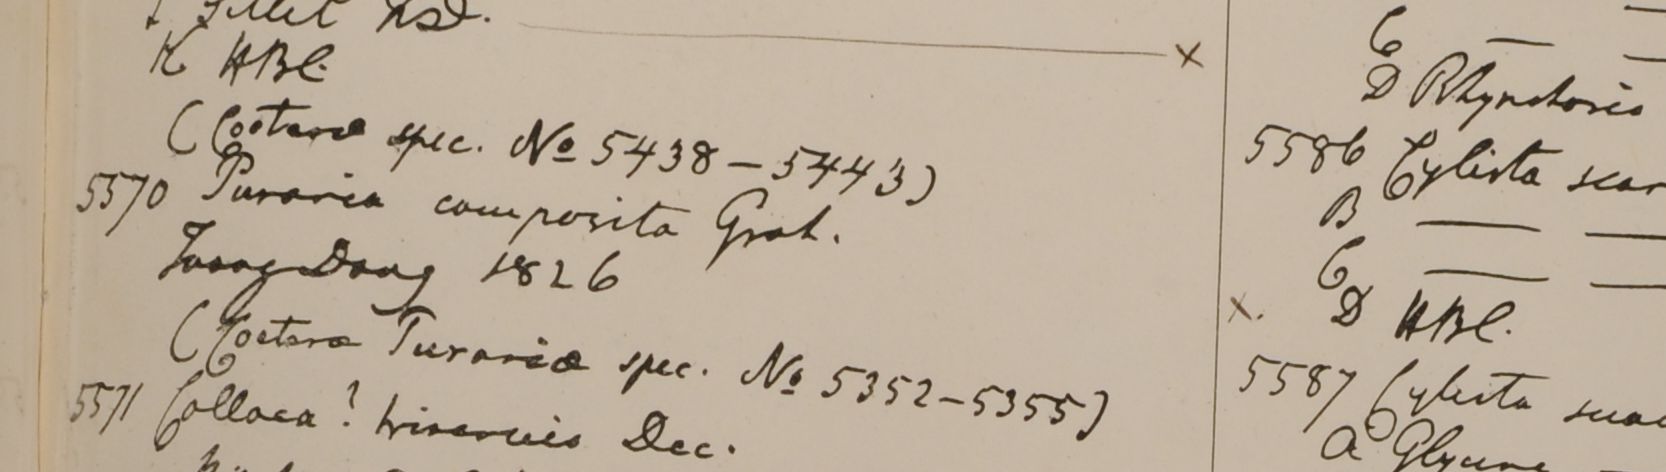 K HBC
(Coetera spec. No 5438 – 5443)
5570 Puraria composita Grah.
Dong 1826
(Coetera Puraria spec. No 5352 – 5355)
5571 Collaea? Dec.
C —
D Rhynchosia
5586 Cylista scar
B — —
C — —
D HBC.
5587 Cylista
a Glycine